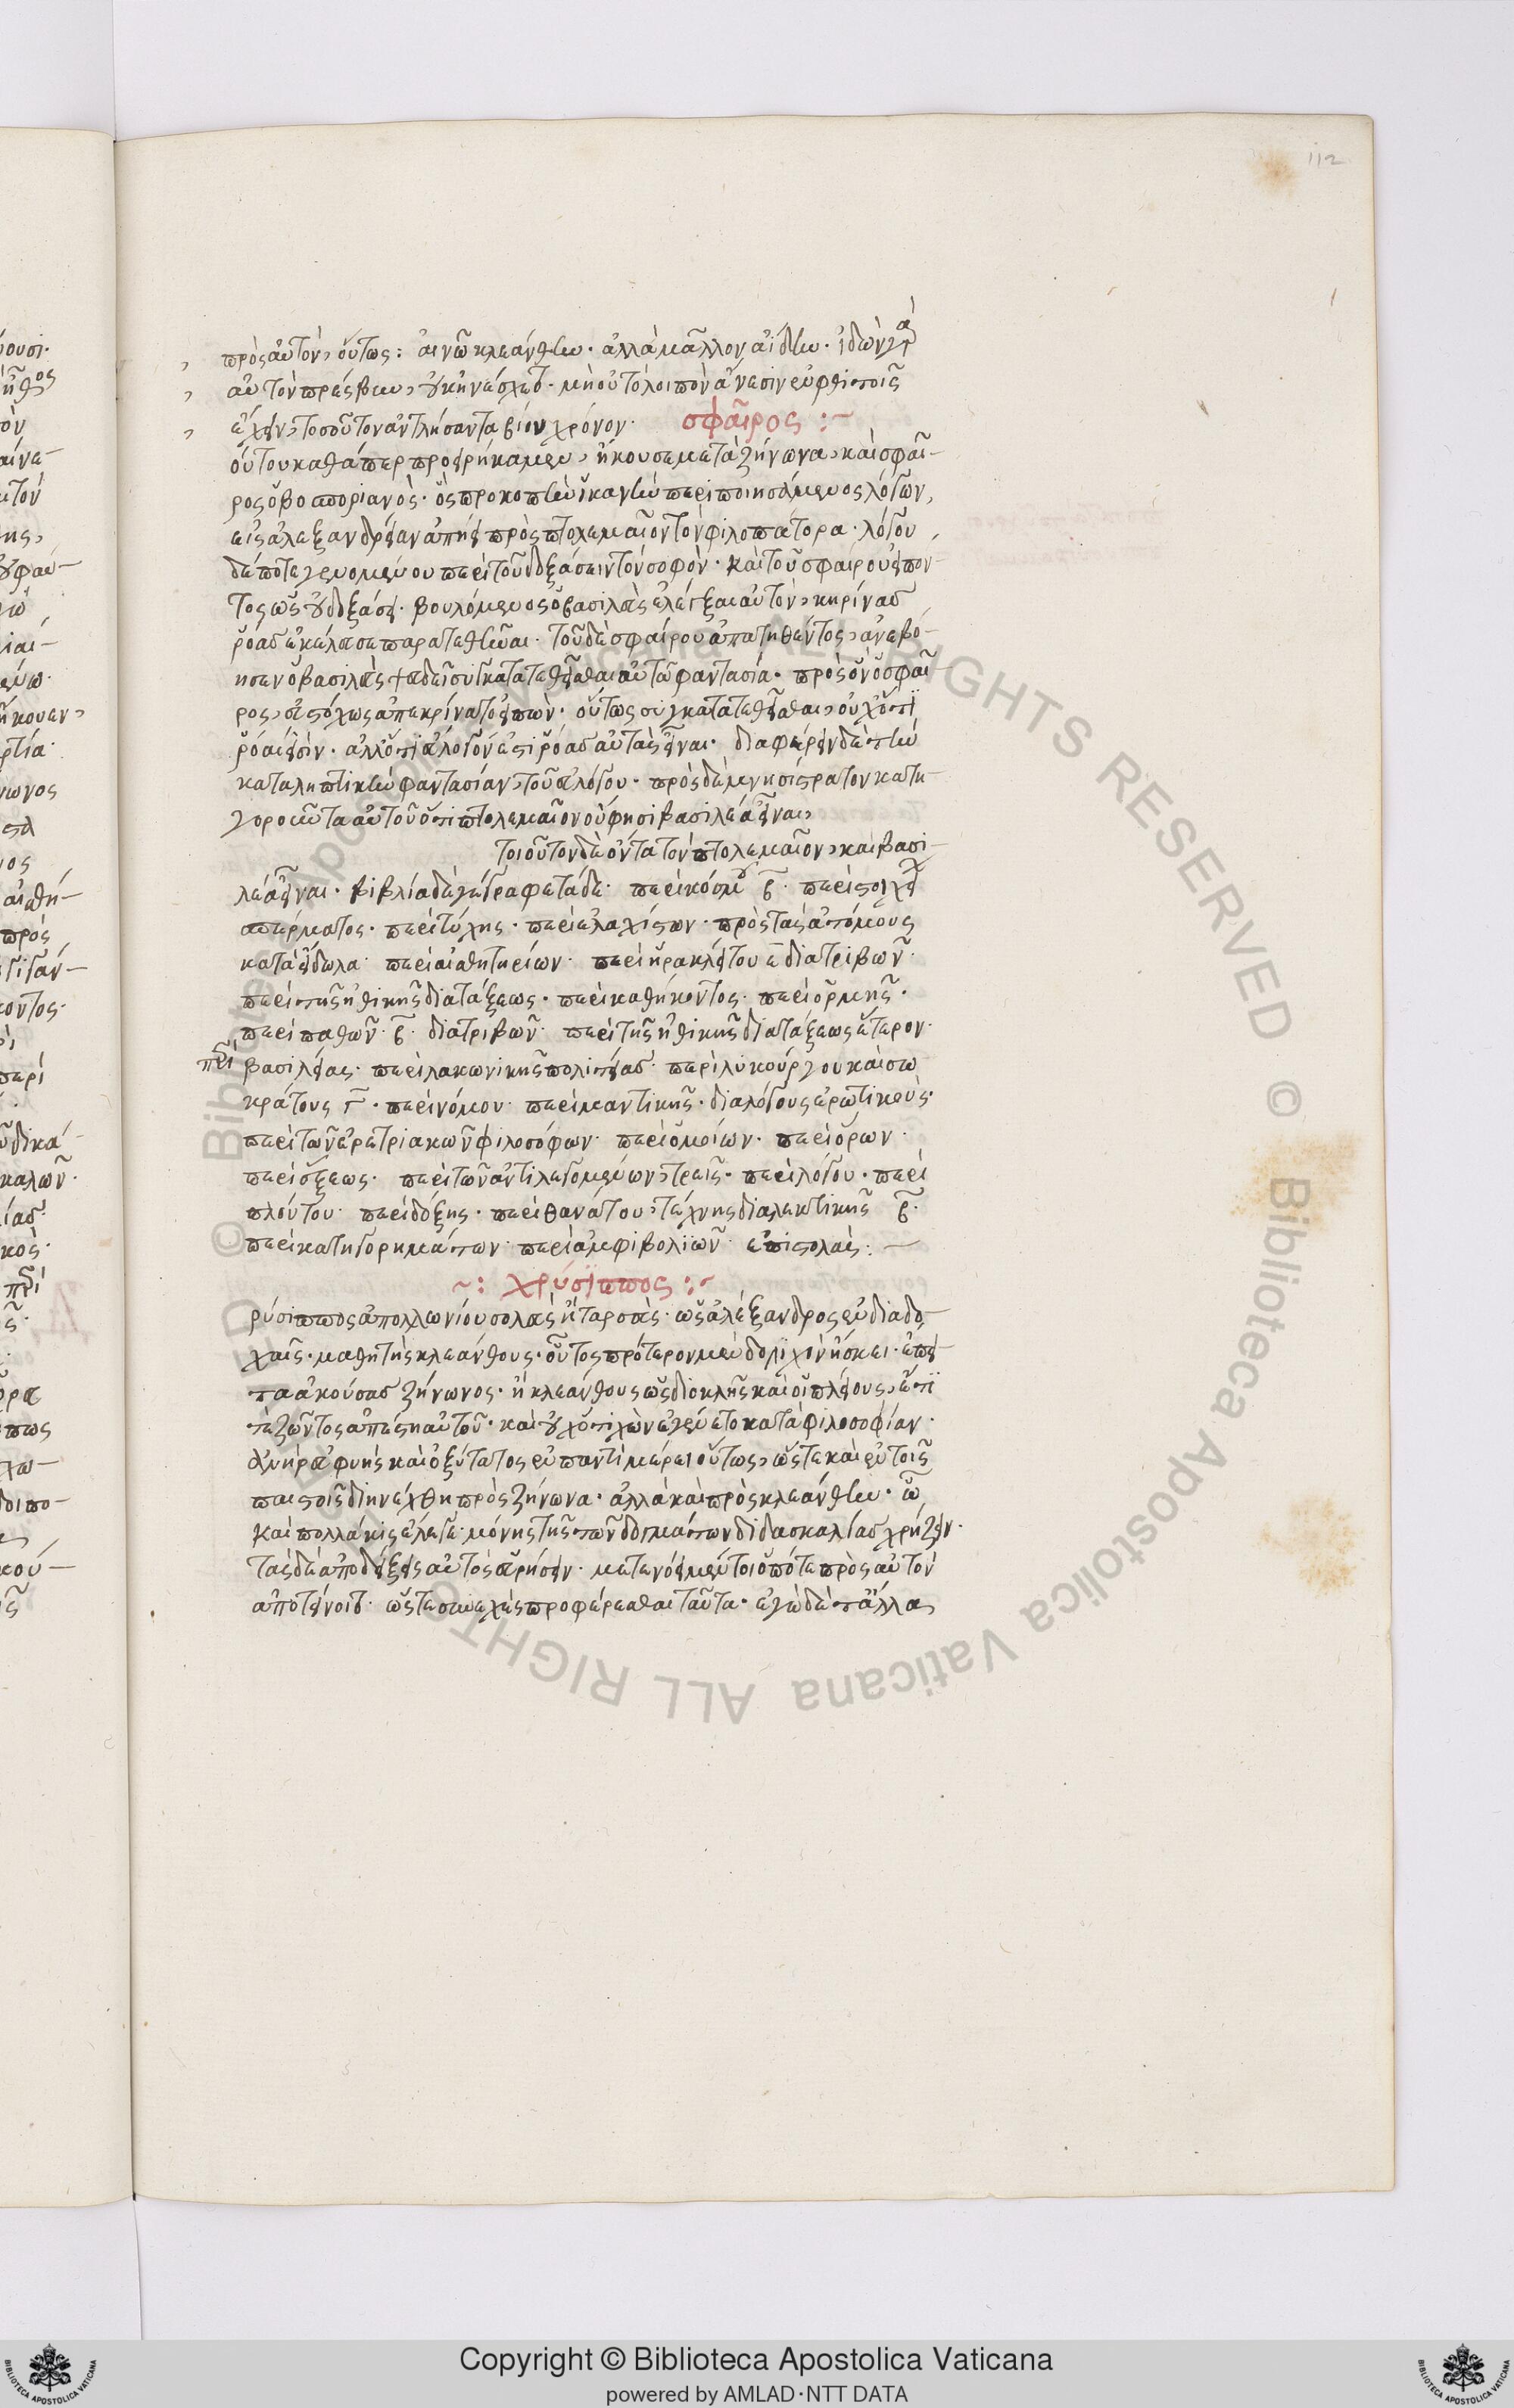 112
πρὸς αὐτὸν, οὕτως: αἰνῶ κλεάνθην· ἀλλὰ μᾶλλον ἀΐδην· ἰδὼν γὰρ
αὐτὸν πρέσβυν, οὐκ ἠνέσχετο· μὴ οὐ τὸ λοιπὸν ἄνεσιν ἐν φθιτοῖς
ἔχειν, τοσοῦτον ἀντλήσαντα βίου χρόνον· σφαῖρος :~
οὗτου καθάπερ προειρήκαμεν, ἤκουσε μετὰ ζήνωνα, καὶ σφαῖ-
ρος ὁ βοσποριανὸς· ὃς προκοπὴν ἱκανὴν περιποιησάμενος λόγων,
εἰς ἀλεξανδρείαν ἀπῄει πρὸς πτολεμαῖον τὸν φιλοπάτορα· λόγου
δέ ποτε γενομένου περὶ τοῦ δοξάσειν τὸν σοφὸν· καὶ τοῦ σφαίρου εἰπόν-
τος ὡς οὐ δοξάσει· βουλόμενος ὁ βασιλεὺς ἐλέγξαι αὐτὸν, κηρίνας
ῥόας ἐκέλευσε παρατεθῆναι· τοῦ δὲ σφαίρου ἀπατηθέντος, ἀνεβό-
ησεν ὁ βασιλεὺς ψευδεῖ συγκατατεθεῖσθαι αὐτῶ φαντασία· πρὸς ὃν ὁ σφαῖ-
ρος, εὐστόχως ἀπεκρίνατο εἰπὼν· οὕτως συγκατατεθεῖσθαι, οὐχ ὅτι
ῥόαι εἰσὶν· ἀλλ' ὅτι εὔλογόν ἐστι ῥόας αὐτὰς εἶναι· διαφέρειν δὲ τὴν
καταληπτικὴν φαντασίαν, τοῦ εὐλόγου· πρὸς δὲ μνησίστρατον κατη-
γοροῦντα αὐτοῦ ὅτι πτολεμαῖον οὔ φησι βασιλέα εἶναι,
τοιοῦτον δὲ ὄντα τὸν πτολεμαῖον, καὶ βασι-
λέα εἶναι· βιβλία δὲ γέγραφε τάδε· περὶ κόσμου β· περὶ στοιχεί
σπέρματος· περὶ τύχης· περὶ ἐλαχίστων· πρὸς τὰς ἀτόμους
κατὰ εἴδωλα· περὶ αἰσθητηρίων· περὶ ἡρακλείτου ε διατριβῶν·
περὶ τῆς ἠθικῆς διατάξεως· περὶ καθήκοντος· περὶ ὁρμῆς·
περὶ παθῶν· β· διατριβῶν· περὶ τῆς ἠθικῆς διατάξεως ἕτερον·
περὶ βασιλείας· περὶ λακωνικῆς πολιτείας· περὶ λυκούργου καὶ σω
κράτους γ· περὶ νόμου· περὶ μαντικῆς· διαλόγους ἐρωτικοὺς·
περὶ τῶν ἐρετριακῶν φιλοσόφων· περὶ ὁμοίων· περὶ ὅρων·
περὶ ἕξεως· περὶ τῶν ἀντιλεγομένων, τρεῖς· περὶ λόγου· περὶ
πλούτου· περὶ δόξης· περὶ θανάτου, τέχνης διαλεκτικῆς β·
περὶ κατηγορημάτων· περὶ ἀμφιβολιῶν· ἐπιστολὰς: —
~: χρύσιππος :~
ρύσιππος ἀπολλωνίου σολεὺς ἢ ταρσεὺς· ὡς ἀλέξανδρος ἐν διαδο
χαῖς· μαθητὴς κλεάνθους· οὗτος πρότερον μὲν δολιχὸν ἤσκει· ἔπει
τα ἀκούσας ζήνωνος· ἢ κλεάνθους ὡς διοκλῆς καὶ οἱ πλείους, ἔτι
τε ζῶντος ἀπέστη αὐτοῦ· καὶ οὐχ ὁ τυχὼν ἐγένετο κατὰ φιλοσοφίαν·
ἀνὴρ εὐφυὴς καὶ ὀξύτατος ἐν παντὶ μέρει οὕτως, ὥστε καὶ ἐν τοῖς
πλείστοις διηνέχθη πρὸς ζήνωνα· ἀλλὰ καὶ πρὸς κλεάνθην· ὧ
καὶ πολλάκις ἔλεγε μόνης τῆς τῶν δογμάτων διδασκαλίας χρήζειν·
τὰς δὲ ἀποδείξεις αὐτὸς εὑρήσειν· μετενόει μέντοι ὁπότε πρὸς αὐτὸν
ἀποτείνοιτο· ὥστε συνεχὲς προφέρεσθαι ταῦτα· ἐγὼ δὲ τἄλλα